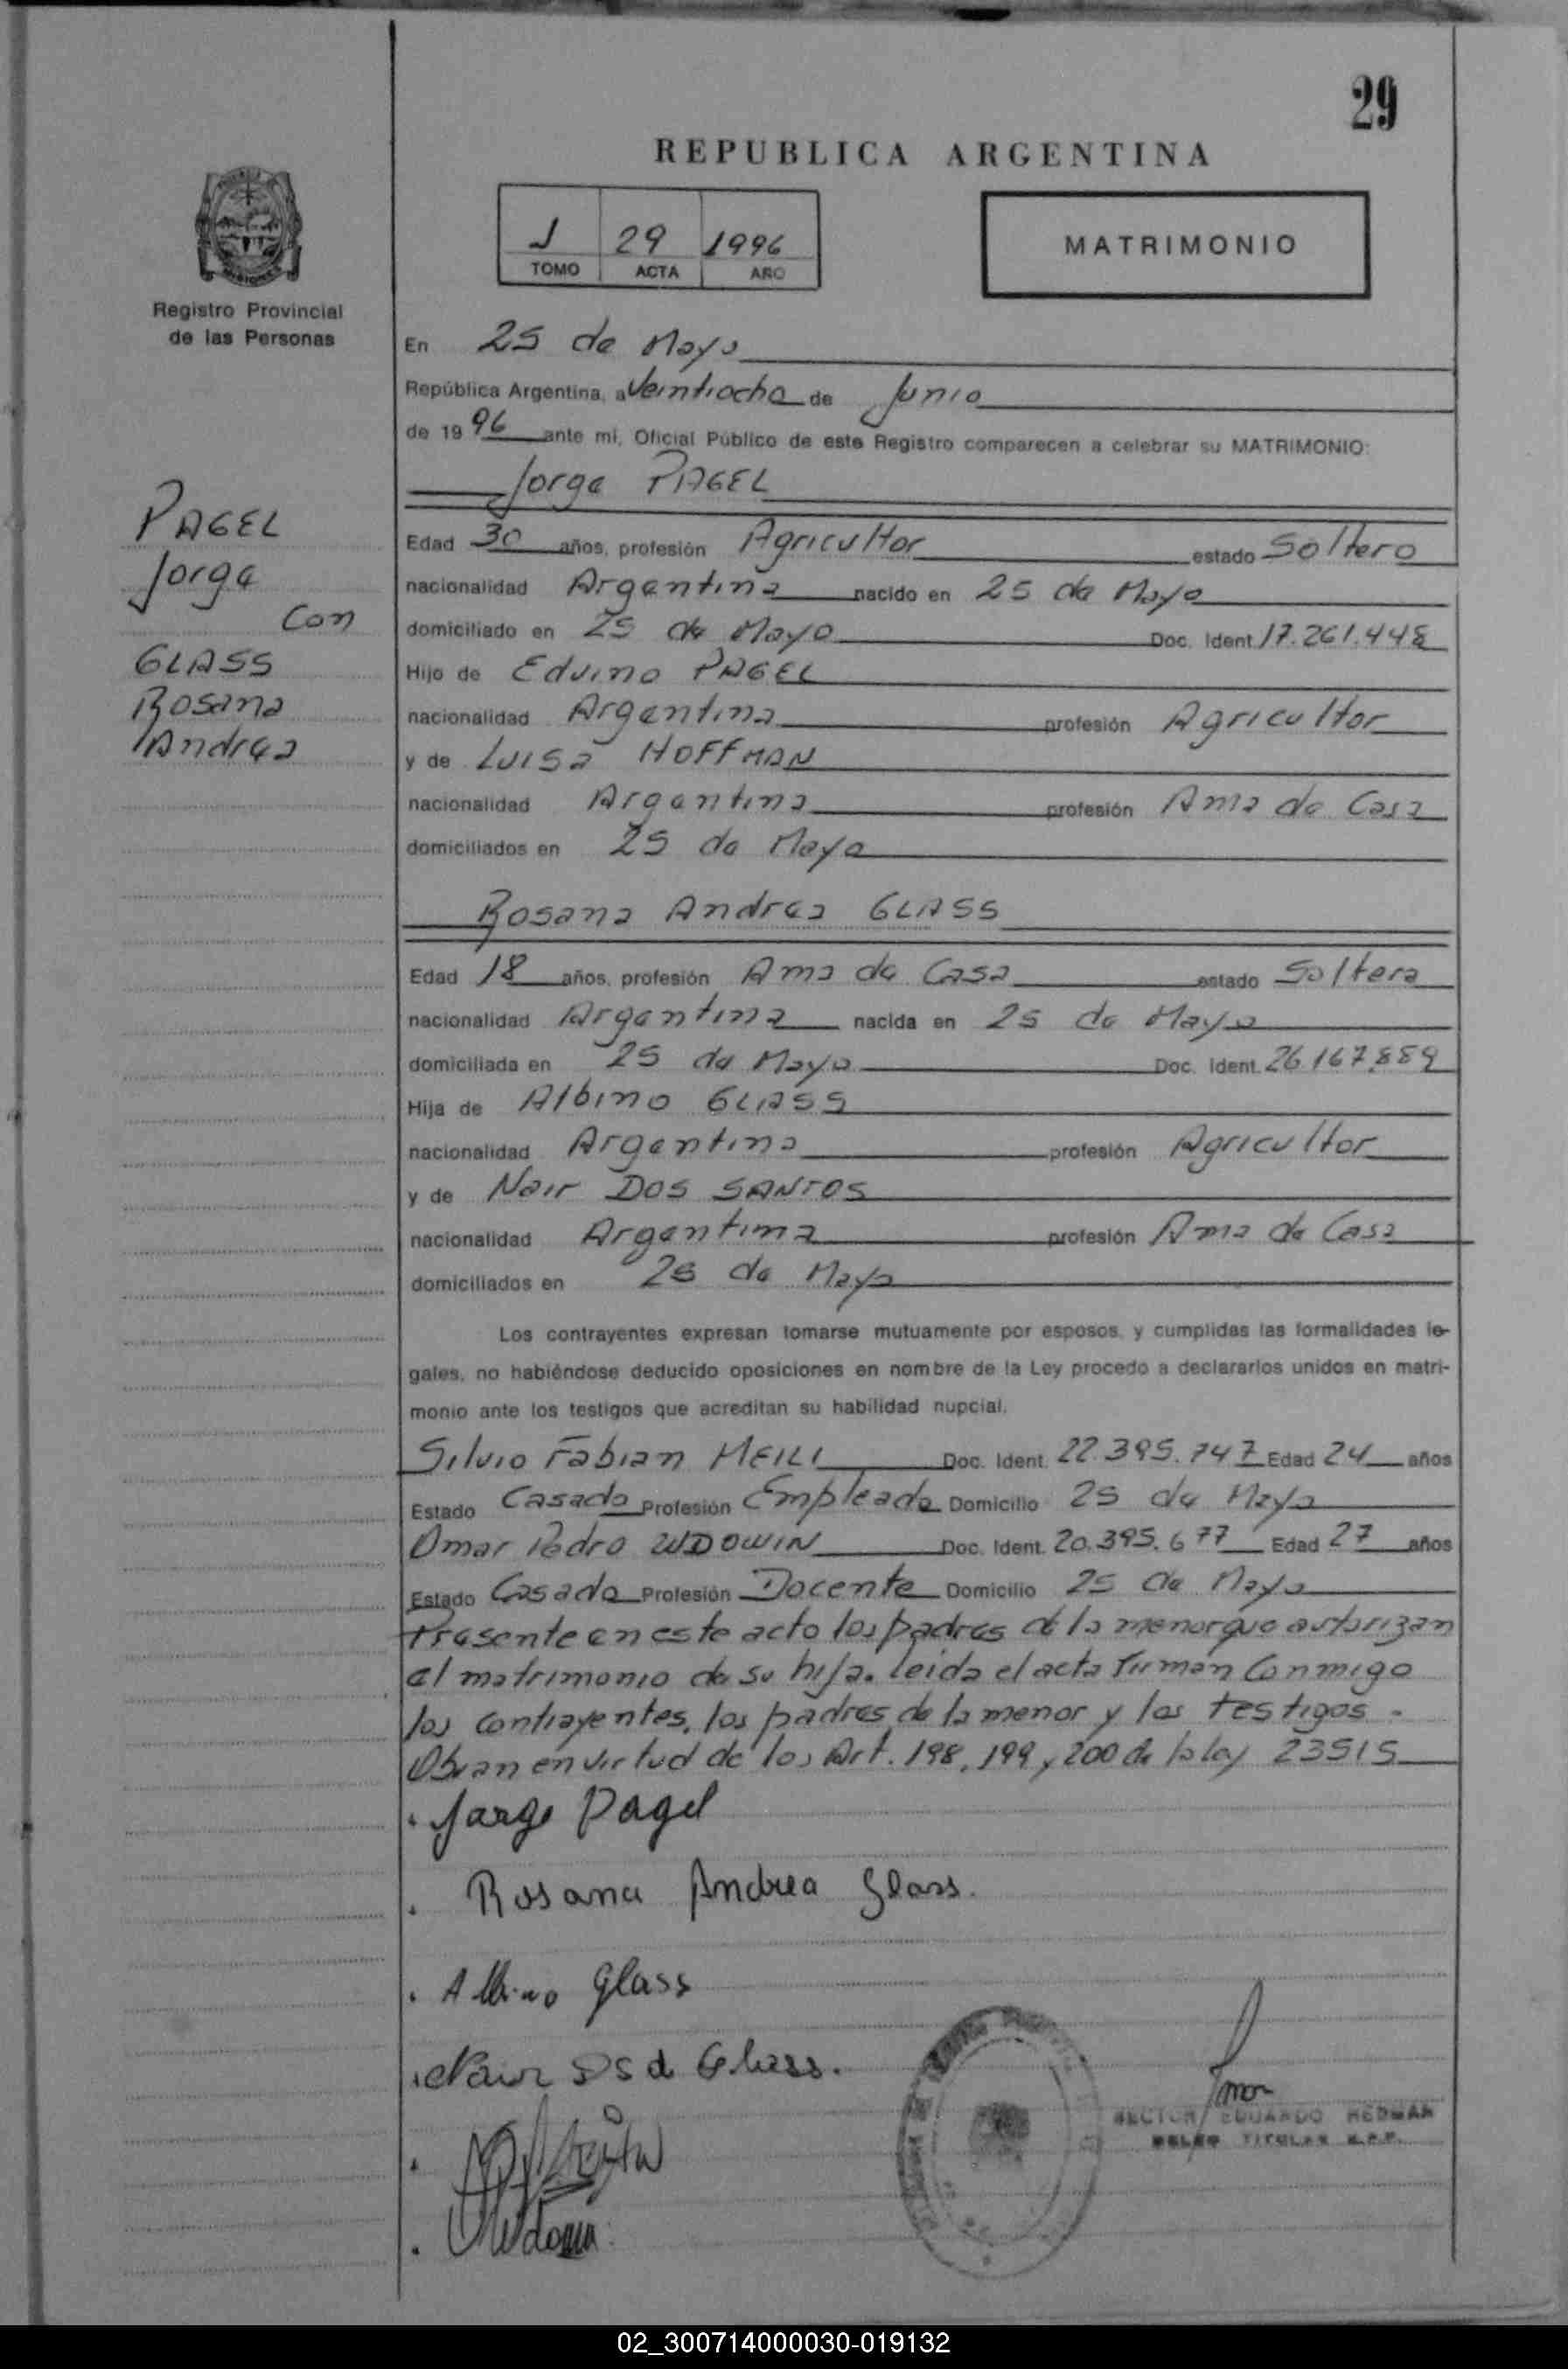 29
REPUBLICA ARGENTINA
1 29 1996
TOMO ACTA AÑO
MATRIMONIO
Registro Provincial
de las Personas
PAGEL
Jorge
con
GLASS
Rosana
Andrea
En 25 de Mayo
República Argentina, a Veintiocho de Junio
de 1996 ante mi, Oficial Público de este Registro comparecen a celebrar su MATRIMONIO:
Jorge PAGEL
Edad 30 años, profesión Agricultor estado Soltero
nacionalidad Argentina nacido en 25 de Mayo
domiciliado en 25 de Mayo Doc. Ident. 17.261.448
Hijo de Edvino PAGEL
nacionalidad Argentina profesión Agricultor
y de Luisa HOFFMAN
nacionalidad Argentina profesión Ama de Casa
domiciliados en 25 de Mayo
Rosana Andrea GLASS
Edad 18 años, profesión Ama de Casa estado Soltera
nacionalidad Argentina nacida en 25 de Mayo
domiciliada en 25 de Mayo Doc. Ident. 26.167.889
Hija de Albino GLASS
nacionalidad Argentina profesión Agricultor
y de Nair DOS SANTOS
nacionalidad Argentina profesión Ama de Casa
domiciliados en 25 de Mayo
Los contrayentes expresan tomarse mutuamente por esposos, y cumplidas las formalidades le-
gales, no habiéndose deducido oposiciones en nombre de la Ley procedo a declararlos unidos en matri-
monio ante los testigos que acreditan su habilidad nupcial.
Silvio Fabian MEILI Doc. Ident. 22.395.747 Edad 24 años
Estado Casado Profesión Empleado Domicilio 25 de Mayo
Omar Pedro WDOWIN Doc. Ident. 20.395.677 Edad 27 años
Estado Casado Profesión Docente Domicilio 25 de Mayo
Presente en este acto los padres de la menor que autorizan
el matrimonio de su hija. leida el acta firman Conmigo
los contrayentes, los padres de la menor y los testigos.
Obran en virtud de los Art. 198, 199 y 200 de la ley 23515
Jorge Pagel
Rosana Andrea Glass.
Albino Glass
Nair D S d Glass.
HECTOR EDUARDO HEDMAN
TITULAR R.P.P.
02_300714000030-019132